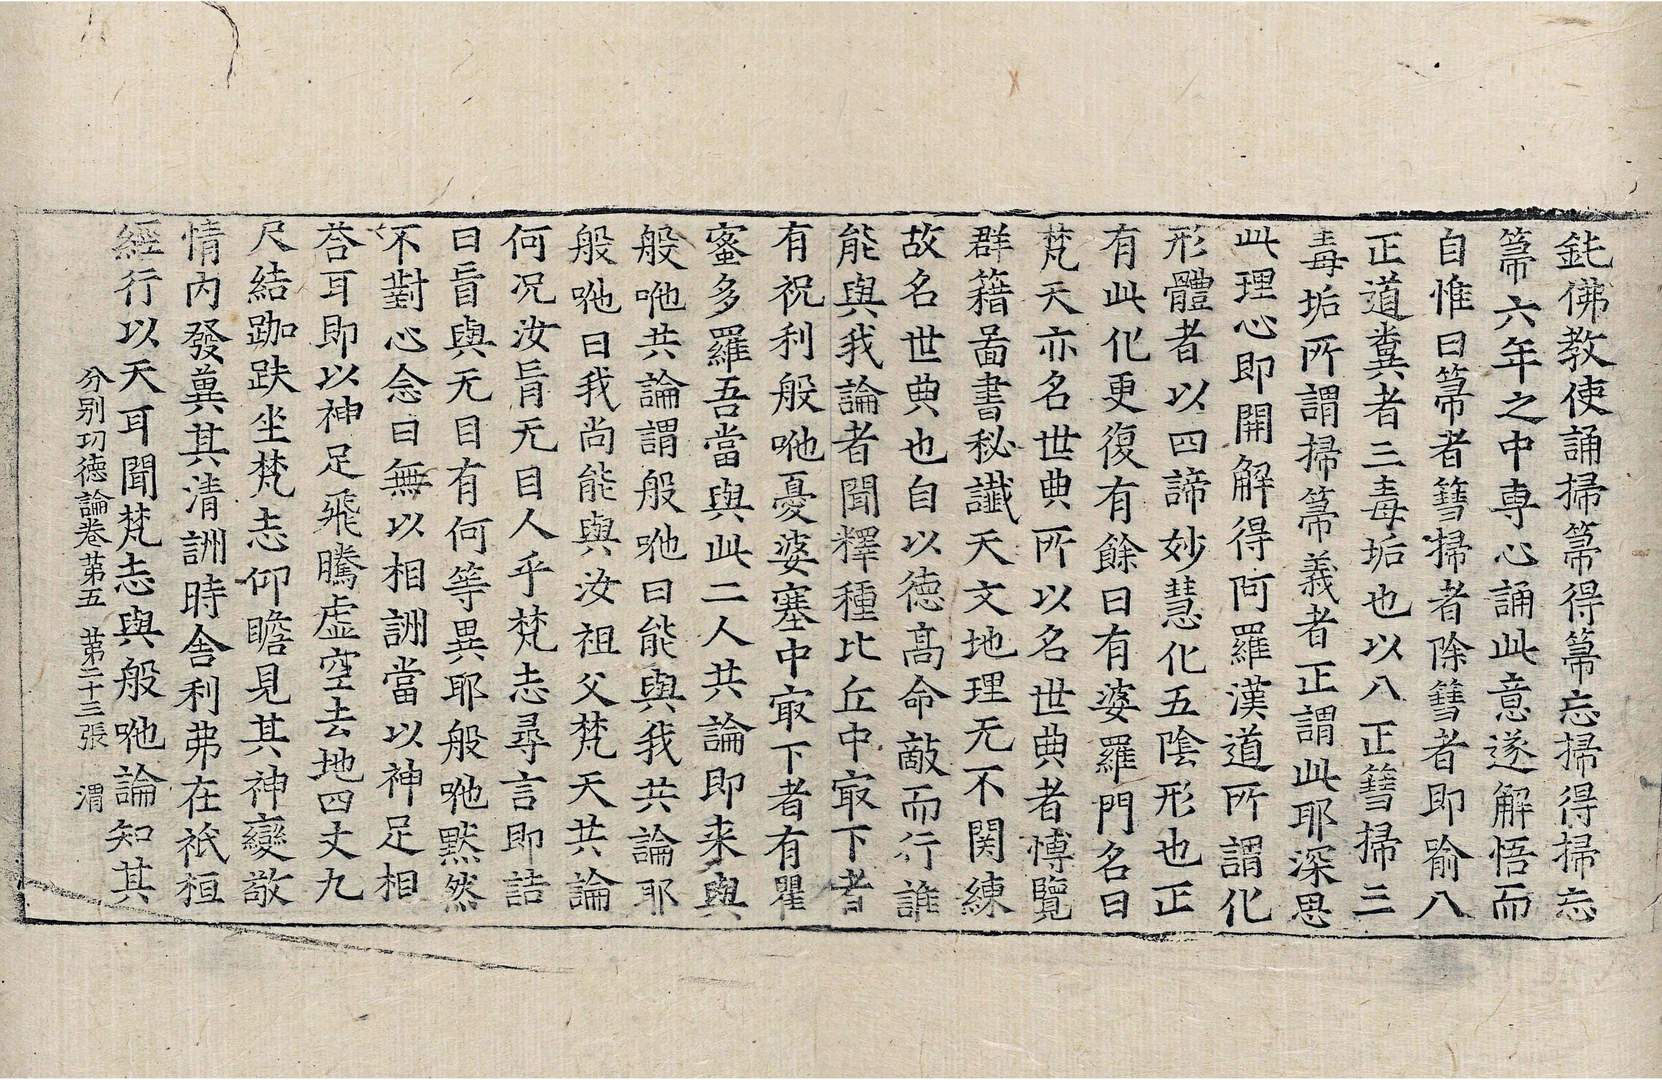 鈍佛教使誦掃箒得箒忘掃得掃忘
箒六年之中專心誦此意遂解悟而
自惟曰箒者篲掃者除篲者即喻八
正道糞者三毒垢也以八正篲掃三
毒垢所謂掃箒義者正謂此耶深思
此理心即開解得阿羅漢道所謂化
形體者以四諦妙慧化五陰形也正
有此化更復有餘曰有婆羅門名曰
梵天亦名世典所以名世典者博覽
群籍啚書秘讖天文地理无不関練
故名世典也自以德髙命敵而行誰
能與我論者聞釋種比丘中㝡下者
有祝利般咃憂婆塞中㝡下者有瞿
蜜多羅吾當與此二人共論即来與
般咃共論謂般咃曰能與我共論耶
般咃曰我尚能與汝祖父梵天共論
何况汝盲无目人乎梵志尋言即詰
曰盲與无目有何等異耶般咃黙然
不對心念曰無以相詶當以神足相
荅耳即以神足飛騰虚空去地四丈九
尺結跏趺坐梵志仰瞻見其神變敬
情内發兾其清詶時舍利弗在祇桓
經行以天耳聞梵志與般咃論知其
分别功德論卷苐五　苐二十三張　渭